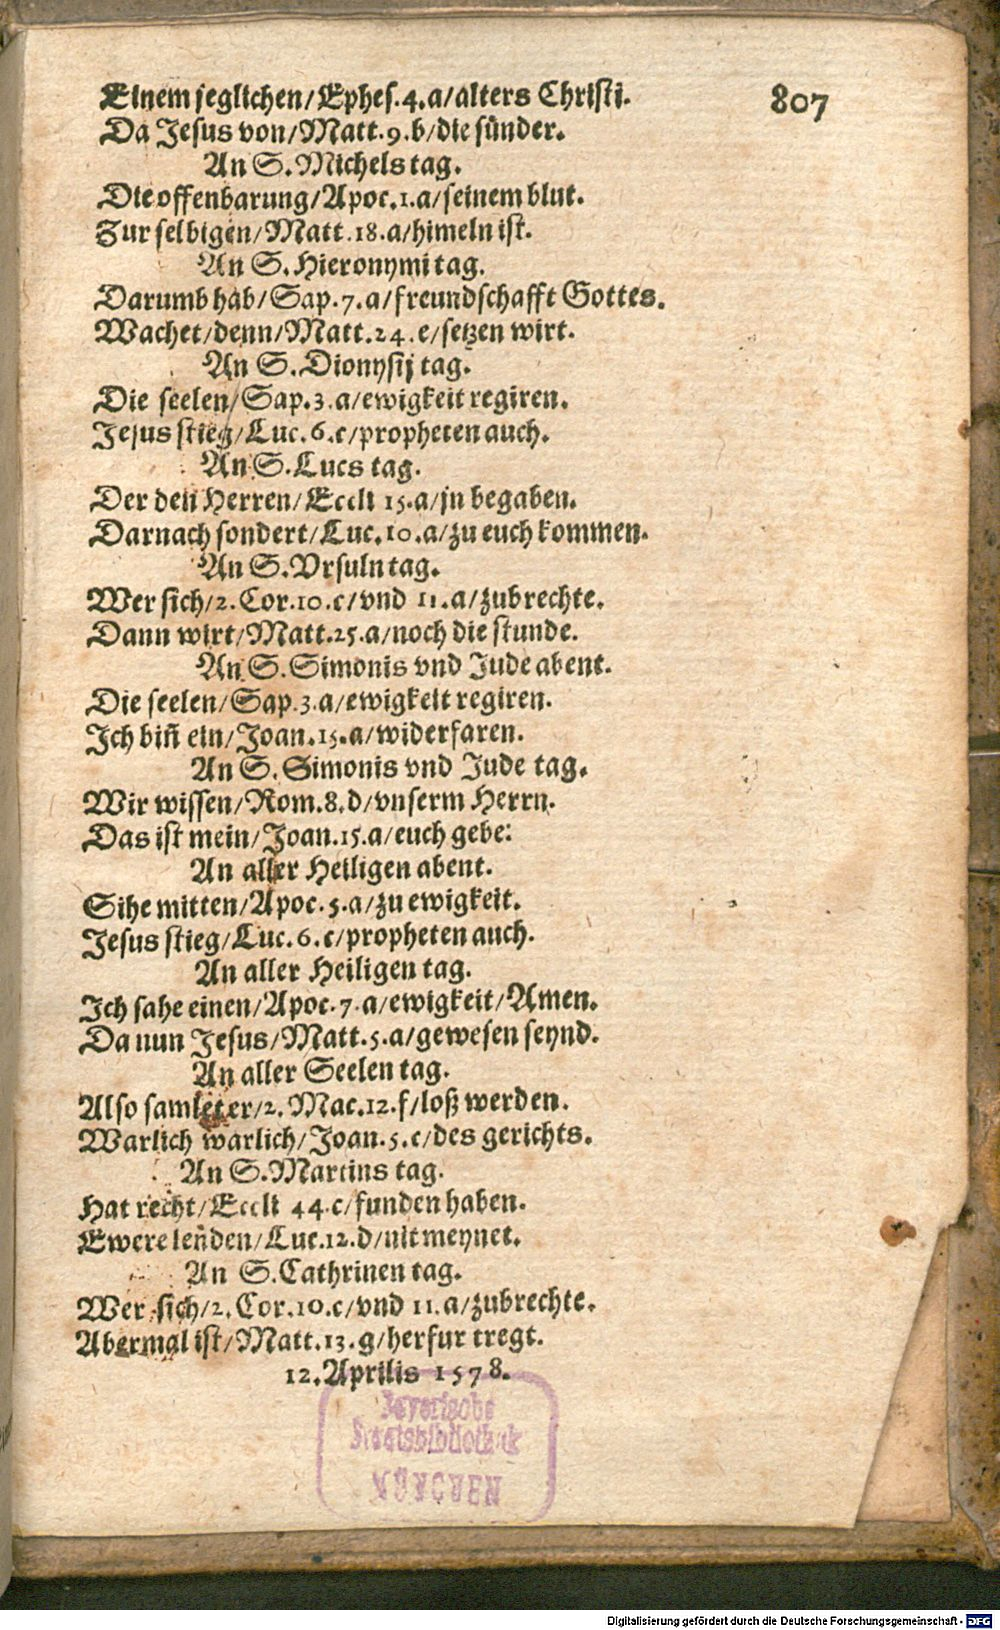 Einem jeglichen/Ephes.4.a/alters Christi.
807
Da Jesus von/Matt.9.b/die sünder.
An S.Michels tag.
Die offenbarung/Apoc.1.a/seinem blut.
Zur selbigen/Matt.18.a/himeln ist.
An S.Hieronymi tag.
Darumb hab/Sap.7.a/freundschafft Gottes.
Wachet/denn/Matt.24.e/setzen wirt.
An S.Dionysij tag.
Die seelen/Sap.3.a/ewigkeit regiren.
Jesus stieg/Luc.6.c/propheten auch.
An S.Lucs tag.
Der den Herren/Eccli 15.a/jn begaben.
Darnach sondert/Luc.10.a/zu euch kommen.
An S.Vrsuln tag.
Wer sich/2.Cor.10.c/vnd 11.a/zubrechte.
Dann wirt/Matt.25.a/noch die stunde.
An S.Simonis vnd Jude abent.
Die seelen/Sap.3.a/ewigkeit regiren.
Ich bin̄ ein/Joan.15.a/widerfaren.
An S.Simonis vnd Jude tag.
Wir wissen/Rom.8.d/vnserm Herrn.
Das ist mein/Joan.15.a/euch gebe:
An aller Heiligen abent.
Sihe mitten/Apoc.5.a/zu ewigkeit.
Jesus stieg/Luc.6.c/propheten auch.
An aller Heiligen tag.
Ich sahe einen/Apoc.7.a/ewigkeit/Amen.
Da nun Jesus/Matt.5.a/gewesen seynd.
An aller Seelen tag.
Also samlet er/2.Mac.12.f/loß werden.
Warlich warlich/Joan.5.c/des gerichts.
An S.Martins tag.
Hat recht/Eccli 44.c/funden haben.
Ewere lenden/Luc.12.d/nit meynet.
An S.Cathrinen tag.
Wer sich/2.Cor.10.c/vnd 11.a/zubrechte.
Abermal ist/Matt.13.g/herfur tregt.
12.Aprilis 1578.
Bayerische
Staatsbibliothek
MÜNCHEN
Digitalisierung gefördert durch die Deutsche Forschungsgemeinschaft - DFG